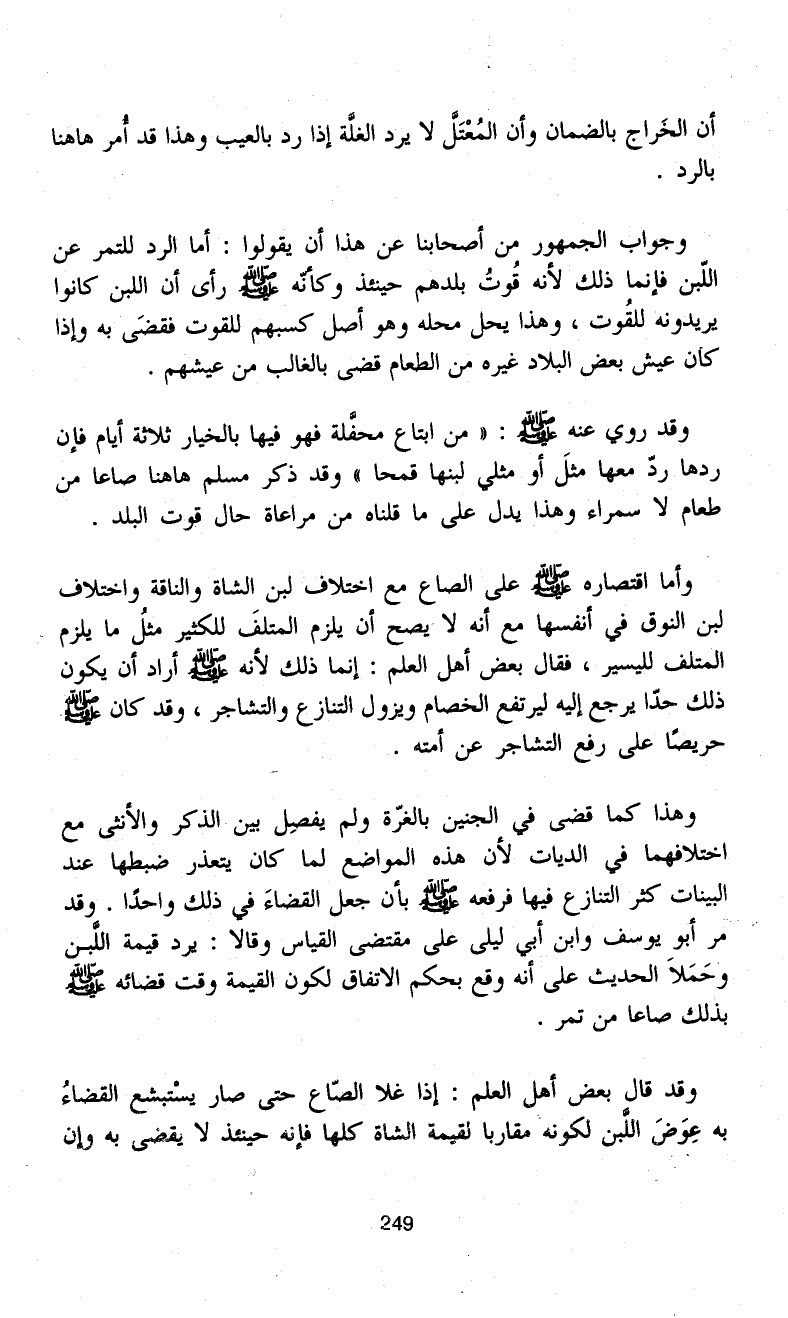 أن الخَراج بالضمان وأن المُغْتَلَّ لا يرد الغلَّة إذا رد بالعيب وهذا قد أُمر هاهنا
بالرد .
وجواب الجمهور من أصحابنا عن هذا أن يقولوا : أما الرد للتمر عن
اللّبن فإنما ذلك لأنه قُوتُ بلدهم حينئذ وكأنّه ﷺ رأى أن اللبن كانوا
يريدونه للقُوت ، وهذا يحل محله وهو أصل كسبهم للقوت فقضَى به وإذا
كان عيش بعض البلاد غيره من الطعام قضى بالغالب من عيشهم .
وقد روي عنه ﷺ : « من ابتاع محفَّلة فهو فيها بالخيار ثلاثة أيام فإن
ردها ردّ معها مثلَ أو مثلي لبنها قمحا » وقد ذكر مسلم هاهنا صاعا من
طعام لا سمراء وهذا يدل على ما قلناه من مراعاة حال قوت البلد .
وأما اقتصاره ﷺ على الصاع مع اختلاف لبن الشاة والناقة واختلاف
لبن النوق في أنفسها مع أنه لا يصح أن يلزم المتلفَ للكثير مثلُ ما يلزم
المتلف لليسير ، فقال بعض أهل العلم : إنما ذلك لأنه ﷺ أراد أن يكون
ذلك حدّا يرجع إليه ليرتفع الخصام ويزول التنازع والتشاجر ، وقد كان ﷺ
حريصًا على رفع التشاجر عن أمته .
وهذا كما قضى في الجنين بالغرّة ولم يفصِل بين الذكر والأنثى مع
اختلافهما في الديات لأن هذه المواضع لما كان يتعذر ضبطها عند
البينات كثر التنازع فيها فرفعه ﷺ بأن جعل القضاءَ في ذلك واحدًا . وقد
مر أبو يوسف وابن أبي ليلى على مقتضى القياس وقالا : يرد قيمة اللَّبن
وحَمَلاَ الحديث على أنه وقع بحكم الاتفاق لكون القيمة وقت قضائه ﷺ
بذلك صاعا من تمر .
وقد قال بعض أهل العلم : إذا غلا الصّاع حتى صار يسْتبشع القضاءُ
به عِوَضَ اللَّبن لكونه مقاربا لقيمة الشاة كلها فإنه حينئذ لا يقضى به وإن
249